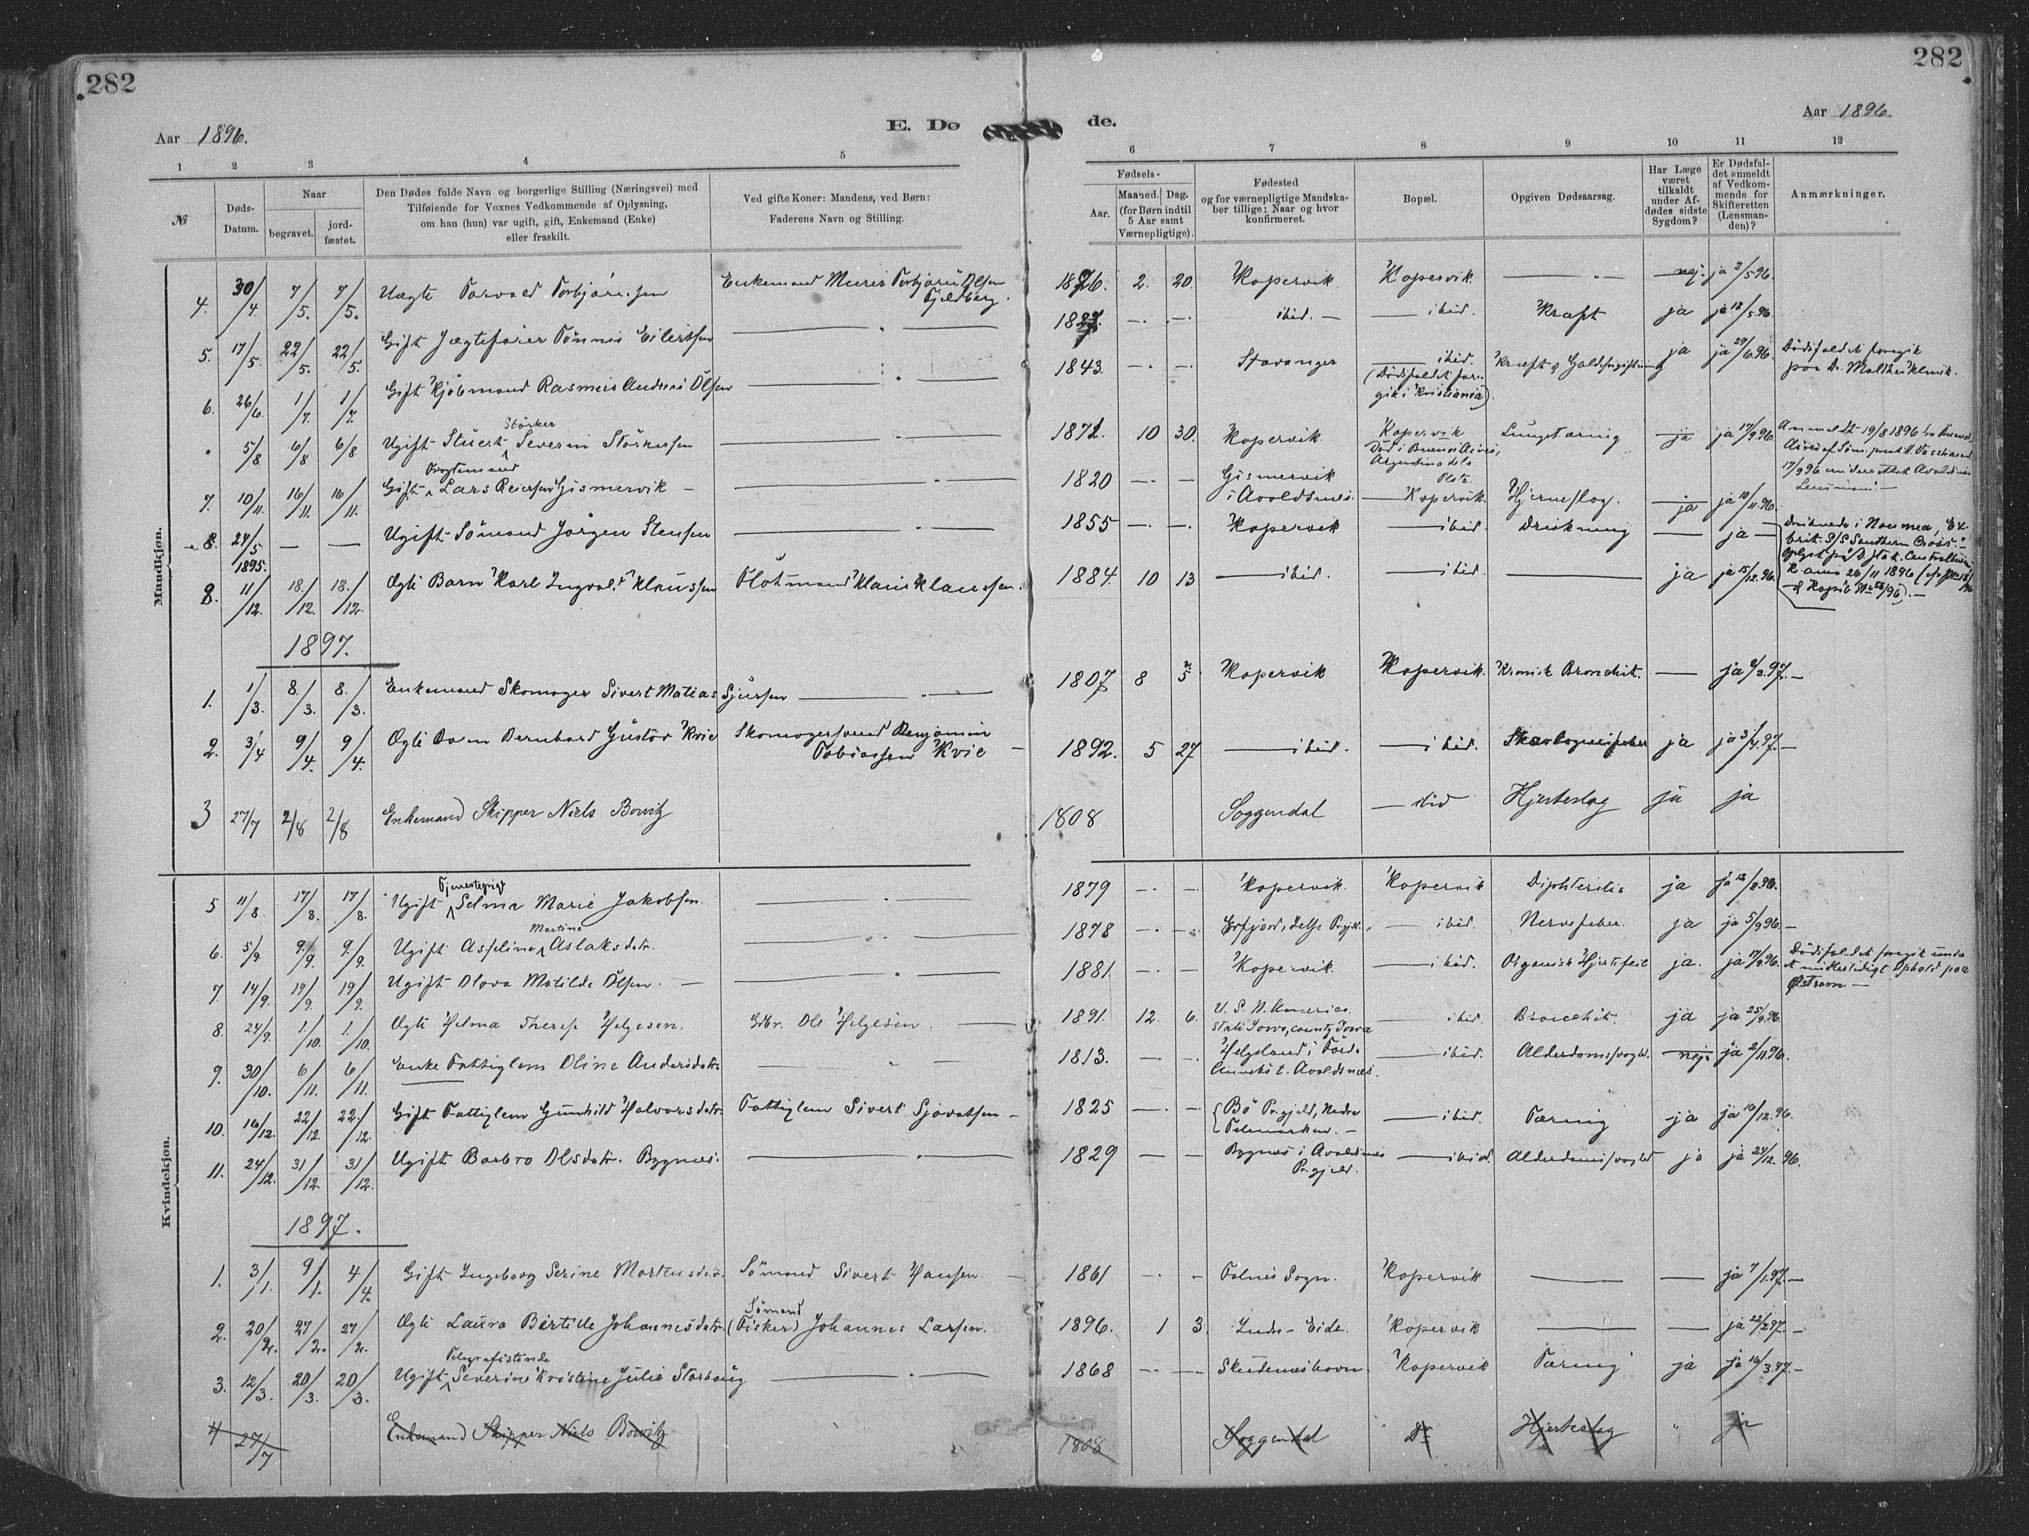 282
282
Aar 1896.
E. Dø
de.
Aar 1896.
1 2 3 4 5 6 7 8 9 10 11 12
№
Døds-
Datum.
Naar
begravet.
jord-
fæstet.
Den Dødes fulde Navn og borgerlige Stilling (Næringsvei) med
Tilføiende for Voxnes Vedkommende af Oplysning,
om han (hun) var ugift, gift, Enkemand (Enke)
eller fraskilt.
Ved gifte Koner: Mandens, ved Børn:
Faderens Navn og Stilling.
Fødsels-
Aar.
Maaned. Dag.
(for Børn indtil
5 Aar samt
Værnepligtige).
Fødested
og for værnepligtige Mandska-
ber tillige: Naar og hvor
konfirmeret.
Bopæl.
Opgiven Dødsaarsag.
Har Læge
været
tilkaldt
under Af-
dødes sidste
Sygdom?
Er Dødsfal-
det anmeldt
af Vedkom-
mende for
Skifteretten
(Lensman-
den)?
Anmærkninger.
Mandkjøn.
4. 30/4. 7/5. 7/5. Uægte Torvald Torbjørnsen Enkemand Murer Torbjørn Olsen Fjeldberg. 1876. 2. 20. Kopervik Kopervik. — " — nej. ja 2/5 96.
5. 17/5. 22/5. 22/5. Gift Jægtefører Tønnes Eilertsen — " — 182 —. —. ibid. — — ibid. Kræft ja ja 18/5 96.
6. 26/6. 1/7. 1/7. Gift Kjøbmand Rasmus Andreas Olsen — " — 1843. —. —. Stavanger — ibid. (Dødsfaldet foregik i Kristiania). Kræft & Galdforgiftning ja ja 29/6 96. Dødsfaldet foregik paa Dr. Malthes klinik.
" 5/8 6/8 6/8 Ugift Stuert Størker Severin Størkersen — " — 1871. 10 30. Kopervik Kopervik Død i Buenos Aires, Argentina de la Plata Lungetæring — ja ja 17/9 96 Anmeldt 19/8 1896
7. 10/11. 16/11. 16/11. Gift Lars Reiersen Gismervik — — " — 1820 —. —. Gismervik i Avaldsnes. — Kopervik. Hjerneslag. — ja ja 10/11. 96.
8. 24/5 1895. — — Ugift Sømand Jørgen Stensen — " — 1855 —. —. Kopervik — ibid Drukning — — ja — Druknede i Noumea, brit. S/S Southern Cross.
8. 11/12. 18./12. 18./12. Ægte Barn Karl Ingvald Klausen Flotmand Klaus Klausen. 1884. 10 13 — ibid. — ibid. — ja ja 15/12. 96.
1897.
1. 1/3. 8./3. 8./3. Enkemand Skomager Sivert Matias Sjursen — " — 1807 8 5 Kopervik Kopervik. Kronisk Bronchit. — ja 2/3. 97. —
2. 3/4 9/4. 9/4. Ægte Barn Bernhard Gustav Kvie Skomagersvend Benjamin Tobiassen Kvie — 1892. 5 27 — ibid. — ibid. Skarlagensfeber ja ja 3/4. 97. —
3 27/7 2/8 2/8 Enkemand Skipper Niels Bowitz 1808 Soggendal — ibid Hjerteslag ja ja
Kvindekjøn.
5 11/8. 17/8. 17/8. Ugift Tjenestepige Selma Marie Jakobsen. — " — 1879 —. —. Kopervik. Kopervik Diphteritis ja ja 12/8 96.
6. 5/9. 9./9. 9./9. Ugift Asseline Martine Aslaksdtr. — " — 1878 —. —. Erfjord, Jelse Prgjld. — ibid. Nervefeber. ja ja 5/9 96. —
7 14/9. 19/9. 19/9. Ugift Olava Matilde Olsen. — — " — 1881. —. —. Kopervik. — ibid. Organisk Hjertefeil ja. ja 17/9 96. Dødsfaldet foregik under et midlertidigt Ophold paa
8. 24/9. 1./10. 1./10. Ægte Helma Therese Helgesen. Gdbr. Ole Helgesen. — 1891. 12. 6. U. S. N. America stat: Iowa, county Iowa — ibid. Broncchit. ja ja 25/9. 96
9. 30/10. 6/11. 6/11. Enke Fattiglem Oline Andersdatr. — " — 1813. —. —. Helgeland i Førde Annex t. Avaldsnæs. — ibid. Alderdomssvaghd. nej. ja 2/11 96.
10. 16/12. 22/12. 22./12. Gift Fattiglem Gunhild Halvorsdatr. Fattiglem Sivert Sjovatsen — 1825 —. —. Bø Prgjeld, Nedre Telemarken. — — ibid. Tæring ja ja 16/12. 96.
11. 24/12. 31/12. 31/12. Ugift Barbro Olsdatr. Bygnes. — " — 1829 —. —. Bygnes i Avaldsnes Prgjeld. — ibid. Alderdomssvaghd ja ja 24/12. 96.
1897.
1. 3/1. 9/1. 4/4. Gift Ingeborg Serine Mortensdatr. Sømand Sivert Hansen. — 1861 —. — Falnes Sogn. Kopervik — — ja 7/1. 97. —
2. 20/2. 27/2. 27/2. Ægte Laura Bertille Johannesdatr. (Fisker) Sømand Johannes Larsen. 1896. 1 3. Indre-Eide. Kopervik — — ja 22/2 97. —
3. 12/3. 20/3. 20/3. Ugift Telegrafistinde Severine Kristine Julie Storhaug — " — 1868 —. —. Skudeneshavn. Kopervik Tæring ja ja 16/3. 97. —
4 27/7 Enkemand Skipper Niels Bowitz 1808 Soggendal Do Hjerteslag " ja